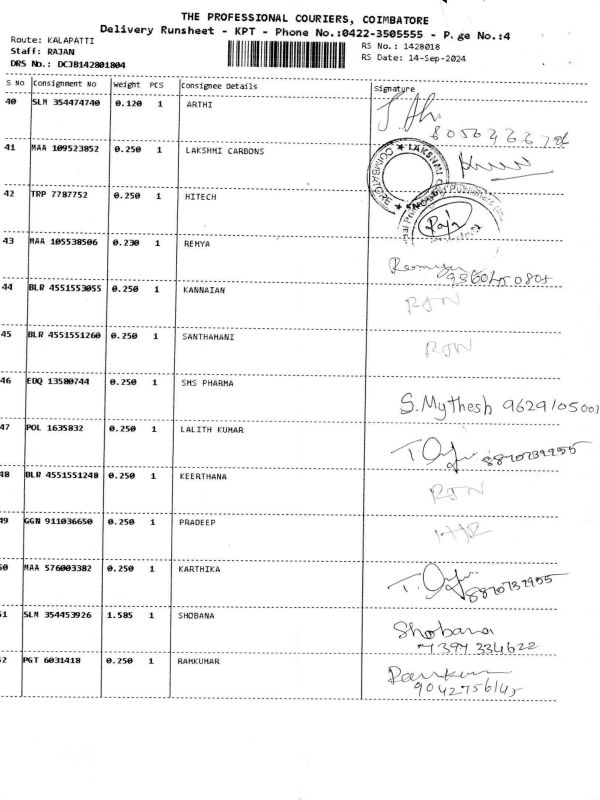 THE PROFESSIONAL COURIERS, COIMBATORE
Delivery Runsheet - KPT - Phone No.:0422-3505555 - P.ge No.:4
Route: KALAPATTI
RS No.: 1428018
Staff: RAJAN
RS Date: 14-Sep-2024
DRS No.: DCJB142801804
S No Consignment No Weight PCS Consignee Details Signature
40 SLM 354474740 0.120 1 ARTHI
41 MAA 109523852 0.250 1 LAKSHMI CARBONS
COIMBATORE ★ LAKSHMI
42 TRP 7787752 0.250 1 HITECH
43 MAA 105538506 0.230 1 REMYA
Remya
44 BLR 4551553055 0.250 1 KANNAIAN
RTN
45 BLR 4551551260 0.250 1 SANTHAMANI
RTN
46 EDQ 13580744 0.250 1 SMS PHARMA
S. Mythesh 9629105001
47 POL 1635832 0.250 1 LALITH KUMAR
8870732955
48 BLR 4551551248 0.250 1 KEERTHANA
RTN
49 GGN 911036650 0.250 1 PRADEEP
50 MAA 576003382 0.250 1 KARTHIKA
8870732955
51 SLM 354453926 1.585 1 SHOBANA
Shobana
7397334622
52 PGT 6031418 0.250 1 RAMKUMAR
Ramkumar
9042756145